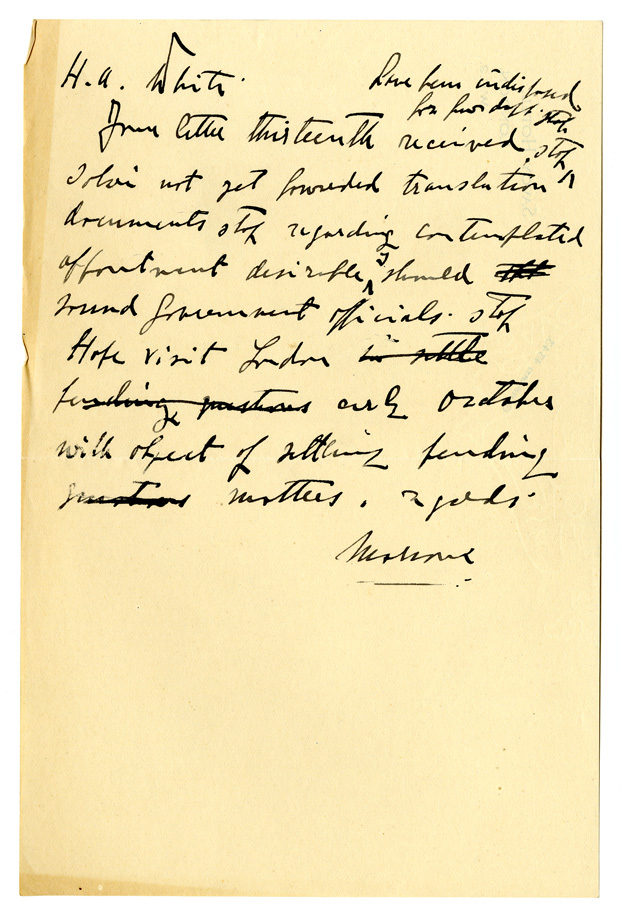 H.A. White
Have been indisposed
for few days. stop
Your letter thirteenth received, stop
not yet forwarded translation
documents stop regarding contemplated
appointment desirable I should
sound government officials. stop
Hope visit London in settle
pending questions early October
with object of settling pending
questions matters. regards.